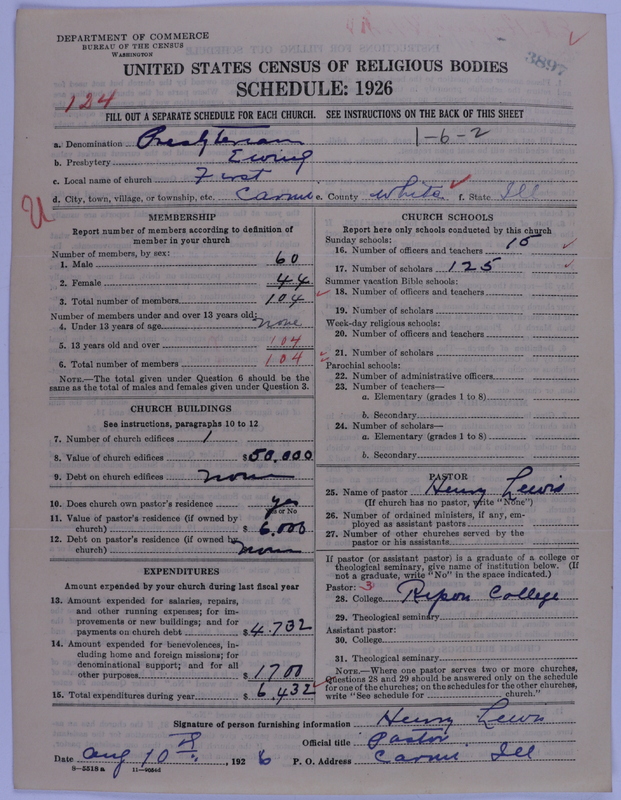 DEPARTMENT OF COMMERCE
BUREAU OF THE CENSUS
WASHINGTON
3897
UNITED STATES CENSUS OF RELIGIOUS BODIES
SCHEDULE: 1926
124
FILL OUT A SEPARATE SCHEDULE FOR EACH CHURCH. SEE INSTRUCTIONS ON THE BACK OF THIS SHEET
1-6-2
a. Denomination Presbyterian
b. Presbytery Ewing
c. Local name of church First
d. City, town, village, or township, etc. Carmi e. County White f. State Ill
MEMBERSHIP
Report number of members according to definition of
member in your church
Number of members, by sex:
1. Male 60
2. Female 44
3. Total number of members 104
Number of members under and over 13 years old:
4. Under 13 years of age none
5. 13 years old and over 104
6. Total number of members 104
NOTE.—The total given under Question 6 should be the
same as the total of males and females given under Question 3.
CHURCH BUILDINGS
See instructions, paragraphs 10 to 12
7. Number of church edifices 1
8. Value of church edifices $50,000
9. Debt on church edifices none
10. Does church own pastor's residence yes
Yes or No
11. Value of pastor's residence (if owned by
church) $6,000
12. Debt on pastor's residence (if owned by
church) none
EXPENDITURES
Amount expended by your church during last fiscal year
13. Amount expended for salaries, repairs,
and other running expenses; for im-
provements or new buildings; and for
payments on church debt $4,732
14. Amount expended for benevolences, in-
cluding home and foreign missions; for
denominational support; and for all
other purposes $1700
15. Total expenditures during year $6432
CHURCH SCHOOLS
Report here only schools conducted by this church
Sunday schools:
16. Number of officers and teachers 15
17. Number of scholars 125
Summer vacation Bible schools:
18. Number of officers and teachers
19. Number of scholars
Week-day religious schools:
20. Number of officers and teachers
21. Number of scholars
Parochial schools:
22. Number of administrative officers
23. Number of teachers—
a. Elementary (grades 1 to 8)
b. Secondary
24. Number of scholars—
a. Elementary (grades 1 to 8)
b. Secondary
PASTOR
25. Name of pastor Henry Lewis
(If church has no pastor, write "None")
26. Number of ordained ministers, if any, em-
ployed as assistant pastors
27. Number of other churches served by the
pastor or his assistants
If pastor (or assistant pastor) is a graduate of a college or
theological seminary, give name of institution below. (If
not a graduate, write "No" in the space indicated.)
Pastor: 3
28. College Ripon College
29. Theological seminary
Assistant pastor:
30. College
31. Theological seminary
NOTE.—Where one pastor serves two or more churches,
Questions 28 and 29 should be answered only on the schedule
for one of the churches; on the schedules for the other churches,
write "See schedule for church."
Signature of person furnishing information Henry Lewis
Official title Pastor
Date Aug 10th, 1926 P. O. Address Carmi Ill
8—5518a